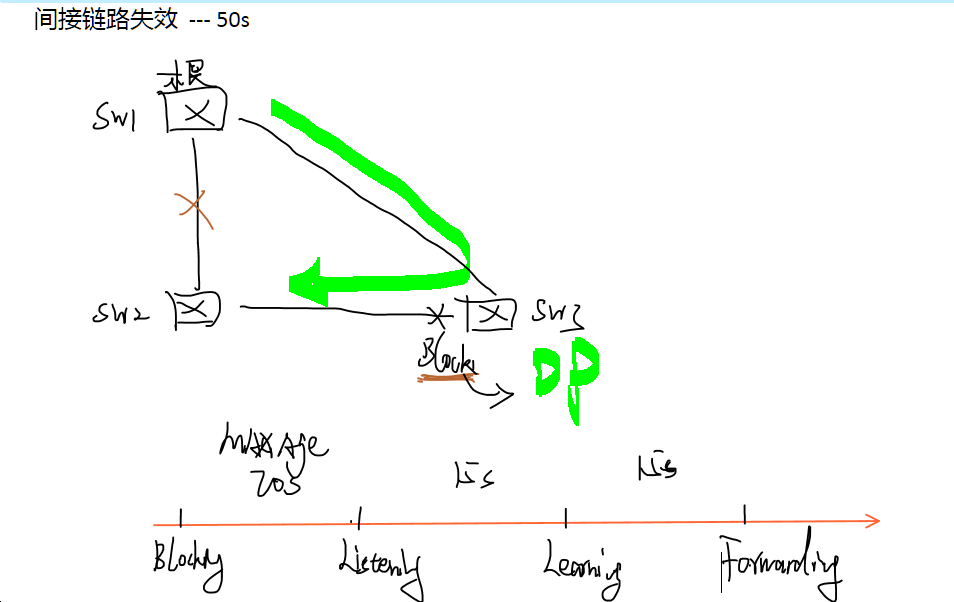 间接链路失效 --- 50s
根
SW1
SW2
SW3
Block
DP
MAX Age
20s
15s
15s
Blocking
Listening
Learning
Forwarding